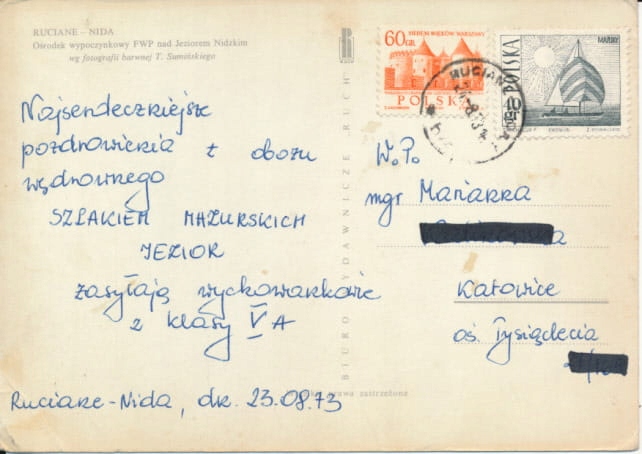 RUCIANE – NIDA
Ośrodek wypoczynkowy FWP nad Jeziorem Nidzkim
wg fotografii barwnej T. Sumińskiego
Najserdeczniejsze
pozdrowienia z obozu
wędrownego
SZLAKIEM MAZURSKICH
JEZIOR
zasyłają wychowankowie
z klasy V A
Ruciane-Nida, dn. 23.08.73
BIURO WYDAWNICZE RUCH
60 GR
SIEDEM WIEKÓW WARSZAWY
POLSKA
MAZURY
POLSKA
10 gr
RUCIANE
W.P.
mgr Marianna
Katowice
oś. Tysiąclecia
prawa zastrzeżone